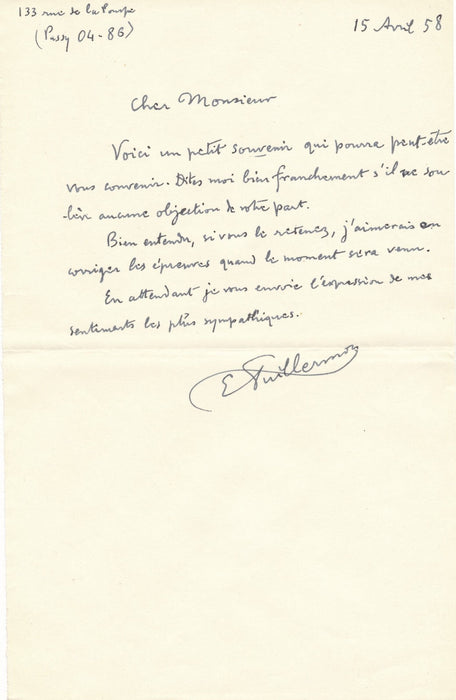 133 rue de la Pompe
(Passy 04-86)
15 Avril 58
Cher Monsieur
Voici un petit souvenir qui pourra peut-être
vous convenir. Dites moi bien franchement s'il ne sou-
lève aucune objection de votre part.
Bien entendu, si vous le retenez, j'aimerais en
corriger les épreuves quand le moment sera venu.
En attendant je vous envoie l'expression de mes
sentiments les plus sympathiques.
E Vuillermoz